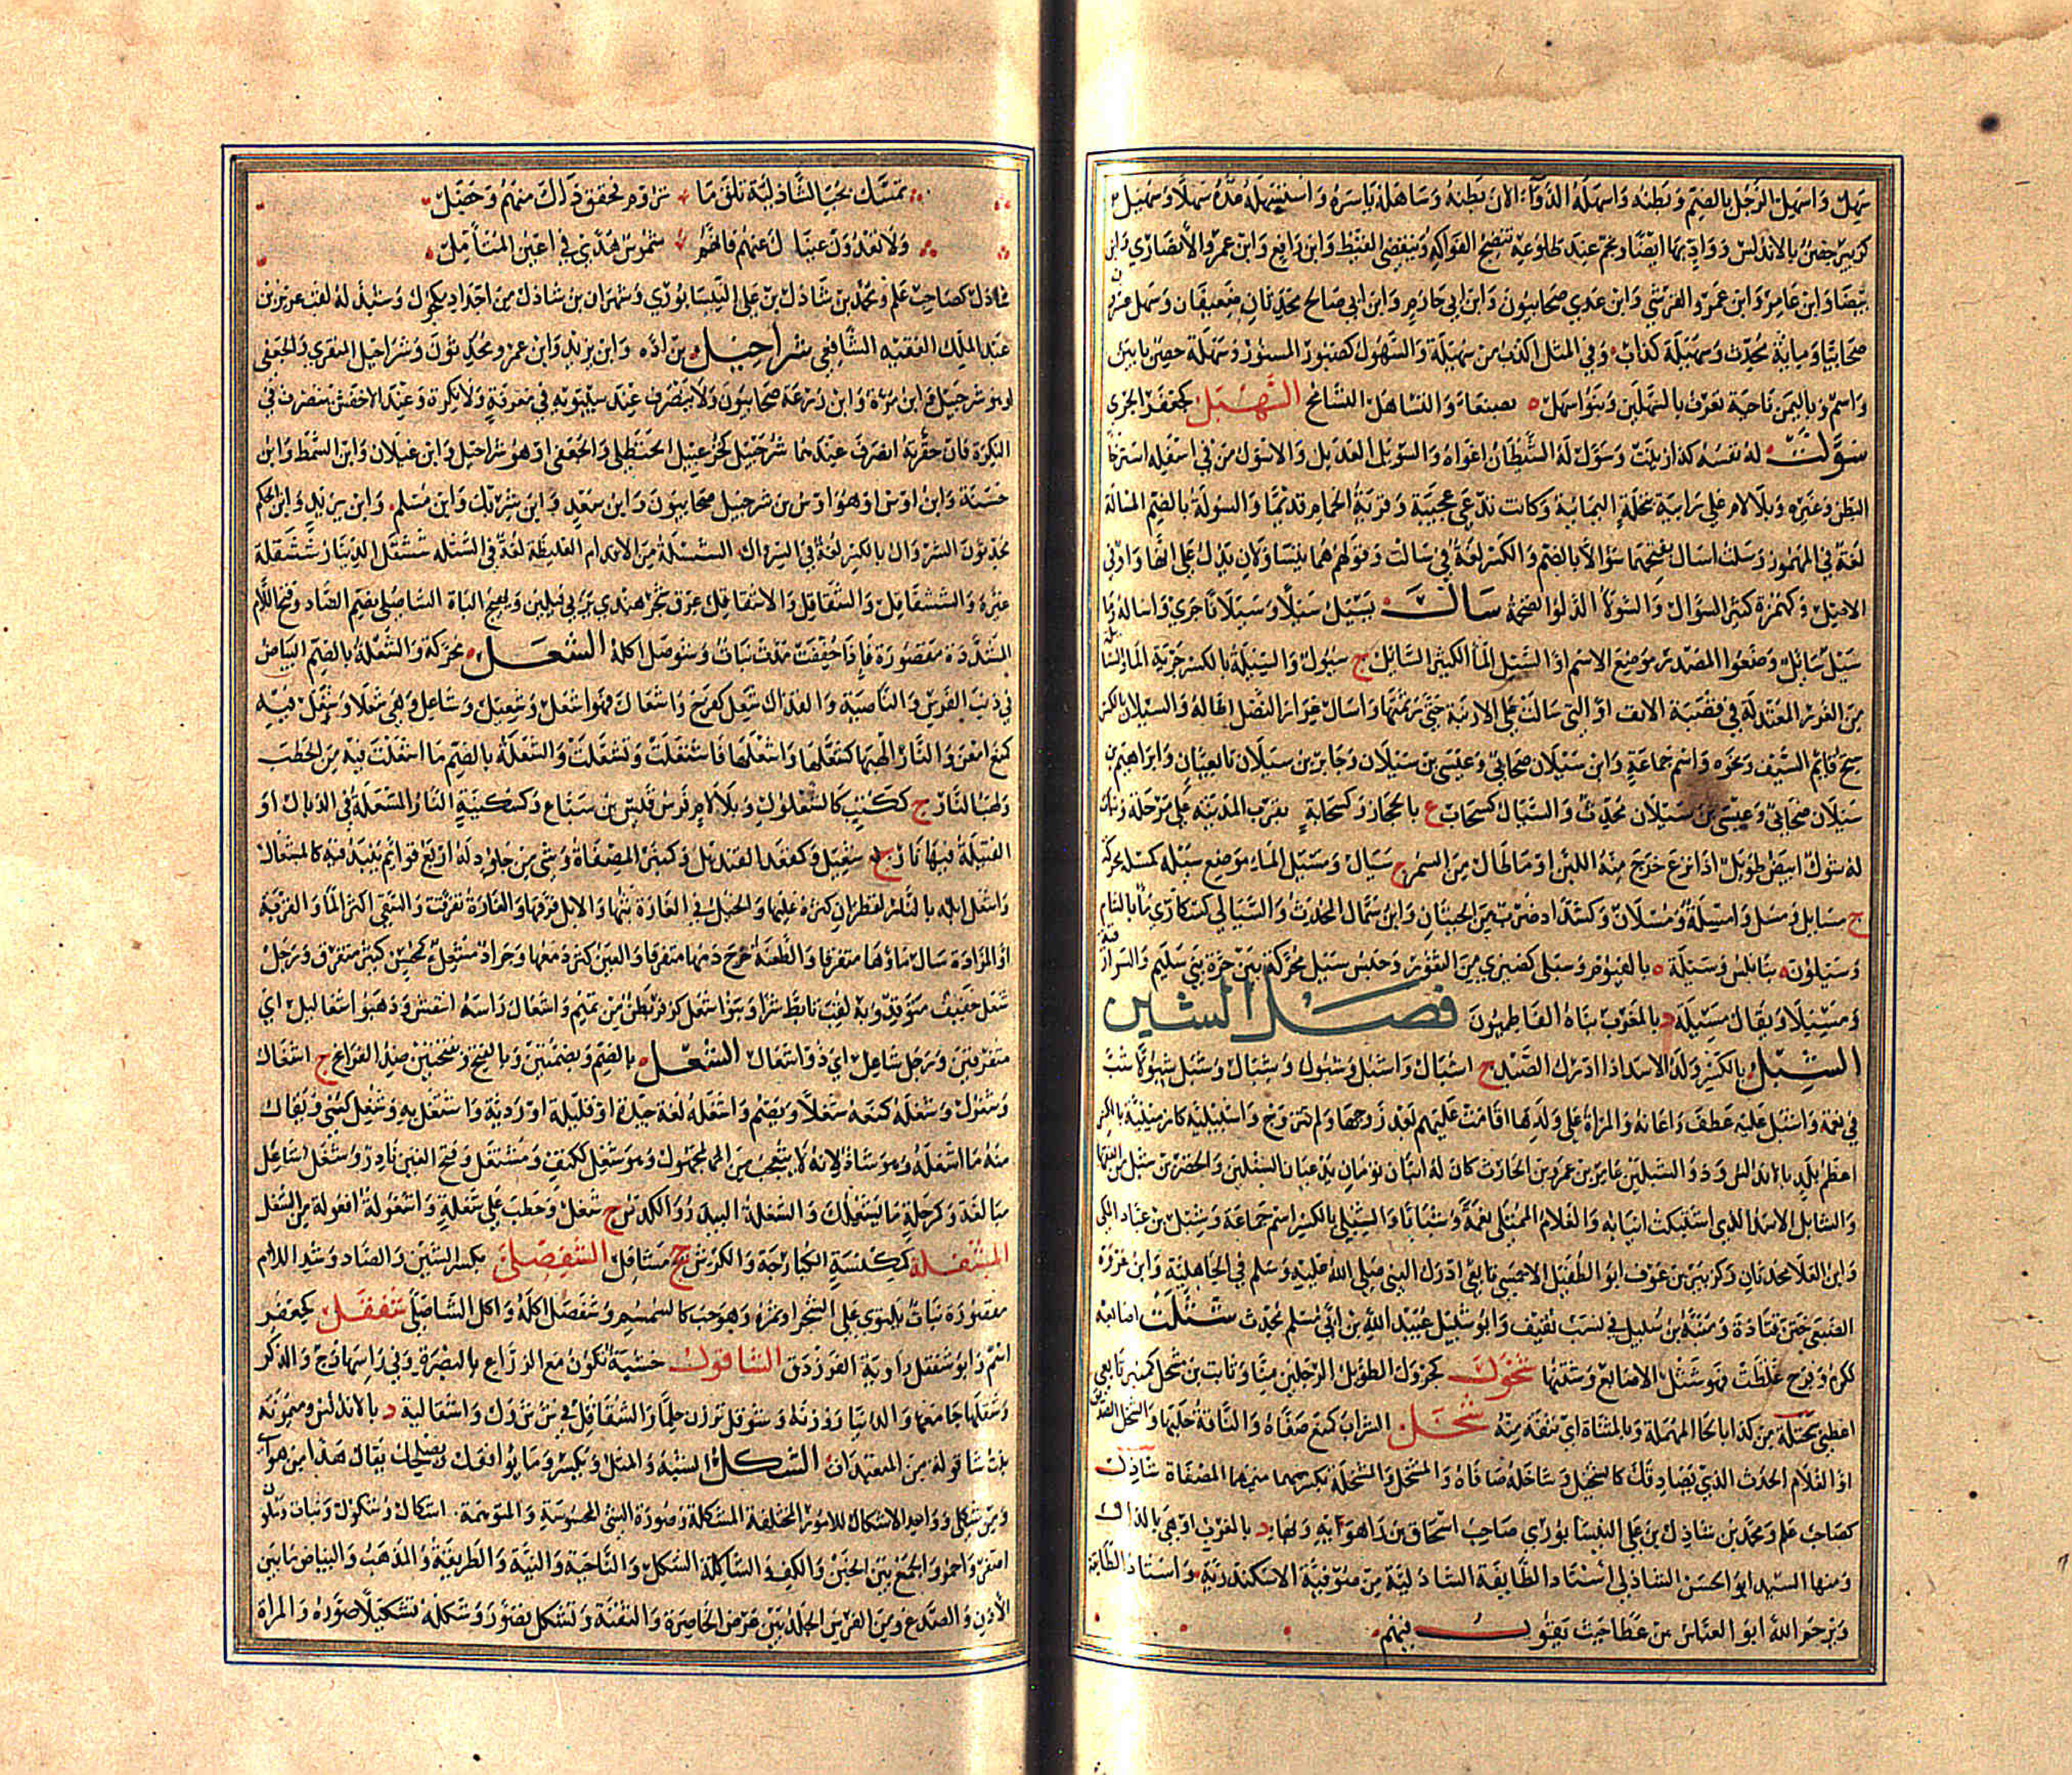 سهل واسهل الرجل بالضم وبطنه واسهله الدواء الان بطنه وساهله ياسره واستسهله عده سهلا وسهيل
كزبير حصن بالاندلس وواد بها ايضا ونجم عند طلوعه تنضج الفواكه وينقضى القيظ وابن رافع وابن عمرو الأنصاري وابن
بيضا وابن عامر وابن عمرو القرشي وابن عدي صحابيون وابن ابي حازم وابن ابي صالح محدثان ضعيفان وسهل عشرون
صحابيا وماية محدث وسهيلة كذاب وفي المثل اكذب من سهيلة والسهول كصبور المسور وسهلة حصن بابين
واسم وباليمن ناحية تعرف بالسهلين وبنو اسهل بصنعاء والتساهل التسامح السهبل كجعفر الجرى
سولت له نفسه كذا زينت وسول له الشيطان اغواه والسويل العديل والاسول من في اسفله استرخا
البطن وغيره وبلا لام على رابية بنخلة اليمانية وكانت تدعى عجيبة وقرية الحمام قديما والسولة بالضم المسالة
لغة في المهموز وسلت اسال بفتحهما سؤالا بالضم والكسر لغة في سالت وقولهم هما يتساولان يدل على انها واو في
الاصيل وكهمزة كثير السؤال والسولا الدلو الضخمة سال يسيل سيلا وسيلانا جرى واساله وما
سيل سائل وضعوا المصدر موضع الاسم او السيل الما الكثير السائل ج سيول والسيلة بالكسر جرية الما والسائلة
من الغرر المعتدلة في قصبة الانف او التي سالت على الارنبة حتى رثمتها واسال غرار النصل اطاله والسيلان بالكسر
سنخ قائم السيف ونحوه واسم جماعة وابن سيلان صحابي وعيسى بن سيلان وجابر بن سيلان تابعيان وابراهيم بن
سيلان صحابي وعيسى بن سيلان محدث والسيال كسحاب ع بالحجاز وكسحابة بقرب المدينة على مرحلة ونبات
له شوك ابيض طويل اذا نزع خرج منه اللبن او ما طال من السمر ج سيال ومسيل الماء موضع سيله كمسله محركة
ج مسايل ومسل وامسلة ومسلان وكشداد ضرب من الحيتان وابن سمال المحدث والسيالي كسكارى ما بالشام
وسيلون بنابلس وسيلة بالفيوم وسيلى كضيزى من القور وحبس سيل محركة بين حرة بني سليم والسوارقية
ومسيلا ويقال مسيلة د بالمغرب بناه الفاطميون فصل الشين
الشبل بالكسر ولد الاسد اذا ادرك الصيد ج اشبال واشبل وشبول وشبال وشبل شبولا شب
في نعمة واشبل عليه عطف واعانه والمراة على ولدها اقامت عليهم بعد زوجها ولم تتزوج واشبيلية كارمينية بالكسر
اعظم بلد بالاندلس وذو الشبلين عامر بن عمرو بن الحارث كان له ابنان توءمان يدعيان الشبلين والخضر بن شبل بن الفقيه
والشابل الاسد الذي اشتبكت انيابه والغلام الممتلى نعمة وشبابا والشبلى بالكسر اسم جماعة وشبل بن عباد المكي
وابن العلا محدثان وكزبير بن عوف ابو الطفيل الاحمسي تابعي ادرك النبي صلى الله عليه وسلم في الجاهلية وابن عزرة
الضبعى ختن قتادة ومنبه بن شبيل في نسب ثقيف وابو شبيل عبيد الله بن ابي مسلم محدث شثلت اصابعه
ككرم وفرح غلظت فهو شثل الاصابع وشثلها شحول كجرول الطويل الرجلين منا وثابت بن شحل كصبر تابعي
اعطني شحلة من كذا بالحا المهملة وبالمثناة اى نتفة منه شخل الشراب كمنع صفاه والناقة حلبها والشخل الصديق
او الغلام الحدث الذي يصادقك كالشخيل وشاخله صافاه والمشخل والمشخلة بكسرهما منهما المصفاة شاذل
كصاحب علم ومحمد بن شاذل بن علي النيسابوري صاحب اسحاق بن راهوايه ولها د بالغرب او هي بالذال
ومنها السيد ابو الحسن الشاذلي أستاد الطايفة الشاذلية من صوفية الاسكندرية واستاد الطايفة
ويرحم الله ابو العباس بن عطا حيث يقول فيهم
تمسك بحب الشاذلية تلق ما تروم فحقق ذاك منهم وحصل
ولا تعدون عيناك عنهم فانهم شموس هدى في اعين المتأمل
شاذل كصاحب علم ومحمد بن شاذل بن علي النيسابوري وشهران بن شاذل من اجداد يكرك وشيذله لقب عزيز بن
عبد الملك الفقيه الشافعي شراحيل بن اده وابن يزيد وابن عمرو محدثون وشراحيل المنقري والجعفى
او هو شرحبيل وابن مرة وابن زرعة صحابيون ولا ينصرف عند سيبويه في معرفة ولا نكرة وعند الاخفش ينصرف في
النكرة فان حقرته انصرف عندهما شرحبيل كخزعبيل الحنظلي والجعفى او هو شراحيل وابن غيلان وابن السمط وابن
حسنة وابن اوس او هو اوس بن شرحبيل صحابيون وابن سعد وابن شريك وابن مسلم وابن يزيد وابن الحكم
محدثون الشروال بالكسر لغة في السروال الششلة من الاقدام الغليظة لغة في الشثلة ششقل الدينار ششقلة
عيره والششقاقل والشقاقل والاشقاقل عرق شجر هندي يربى فيلين ويهيج الباه الشاصلى بضم الصاد وفتح اللام
المشددة مقصورة فإذا خففت مدت نبات وشوصل اكله الشعل محركة والشعلة بالضم البياض
في ذنب الفرس والناصية والقذال شعل كفرح واشعال فهو اشعل وشعيل وشاعل وهى شعلا وشعل فيه
كمنع امعن والنار الهبها كشعلها واشعلها فاشتعلت وتشعلت والشعلة بالضم ما اشعلت فيه من الحطب
ولهب النار ج ككتب كالشعلول وبلا لام فرس قيس بن سباع وكسكينة النار المشعلة في الذبال او
الفتيلة فيها نار ج شعيل وكمقعد القنديل وكمنبر المصفاة وشى من جلود له اربع قوائم ينبذ فيه كالمشعال
واشعل ابله بالقطران كثره عليها والخيل في الغارة بثها والابل فرقها والغارة تفرقت والسقي اكثر الما والقربة
او المزادة سال ماؤها متفرقا والطعنة خرج دمها متفرقا والعين كثر دمعها وجراد مشعل كمحسن كثير متفرق ورجل
شعل خفيف متوقد وبه لقب تابط شرا وبنو اشعل كزفر بطن من تميم واشعال راسه انتفش وذهبوا شعاليل اى
متفرقين ورجل شاعل اى ذو اشعال الشغل بالضم وبضمتين وبالفتح وبفتحتين ضد الفراغ ج اشغال
وشغول وشغله كمنعه شغلا ويضم واشغله لغة جيدة او قليلة او ردئة واشتغل به وشغل كعنى ويقال
منه ما اشغله وهو شاذ لانه لا يتعجب من المجهول وهو شغل ككتف ومشتغل وفتح الغين نادر وشغل شاغل
مبالغة وكرحلة ما يشغلك والشغلة البيدر والكدس ج شغل وخطب علي شغلة واشغولة افعولة من الشغل
المشفلة ككنسة الكبارجة والكرش ج مشافل الشفصلى بكسر الشين والصاد وشد اللام
مقصورة نبات يلتوي على الشجر او ثمره وهو حب كالسمسم وشفصل اكله واكل الشاصلى شفقل كجعفر
اسم وابو شفقل راوية الفرزدق الشاقول خشبة تكون مع الزراع بالبصرة وفي راسها زج والذكر
وشقلها جامعها والدينار وزنه وشوقل ترزن حلما والشقاقل في ش ش ق ل واشقالية د بالاندلس وميمونة
بنت شاقولة من المتعبدات الشكل الشبه والمثل ويكسر وما يوافقك ويصلح لك يقال هذا من هواى
ومن شكلي وواحد الاشكال للامور المختلفة المشكلة وصورة الشى المحسوسة والمتوهمة اشكال وشكول ونبات متلون
اصفر واحمر والجمع بين الخبن والكف والشاكلة الشكل والناحية والنية والطريقة والمذهب والبياض ما بين
الأذن والصدغ ومن الفرس الجلد بين عرض الخاصرة والثفنة وتشكل تصور وشكله تشكيلا صوره والمراة